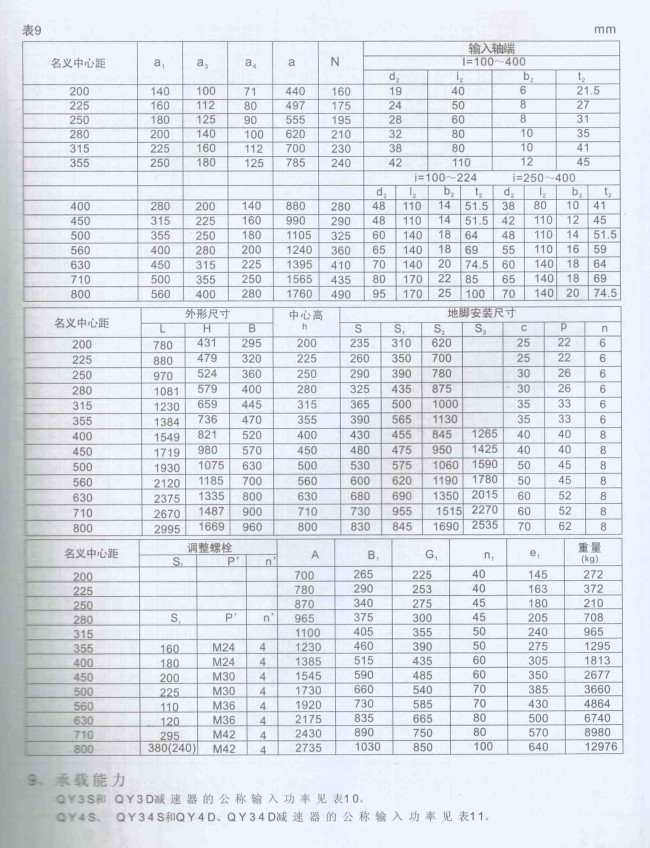 表9 mm
名义中心距 a₁ a₃ a₄ a N 输入轴端
I=100～400
d₂ i₂ b₂ t₂
200 140 100 71 440 160 19 40 6 21.5
225 160 112 80 497 175 24 50 8 27
250 180 125 90 555 195 28 60 8 31
280 200 140 100 620 210 32 80 10 35
315 225 160 112 700 230 38 80 10 41
355 250 180 125 785 240 42 110 12 45
i=100～224 i=250～400
d₂ l₂ b₂ t₂ d₂ l₂ b₂ t₂
400 280 200 140 880 280 48 110 14 51.5 38 80 10 41
450 315 225 160 990 290 48 110 14 51.5 42 110 12 45
500 355 250 180 1105 325 60 140 18 64 48 110 14 51.5
560 400 280 200 1240 360 65 140 18 69 55 110 16 59
630 450 315 225 1395 410 70 140 20 74.5 60 140 18 64
710 500 355 250 1565 435 80 170 22 85 65 140 18 69
800 560 400 280 1760 490 95 170 25 100 70 140 20 74.5
名义中心距 外形尺寸 中心高 地脚安装尺寸
L H B h S S₁ S₂ S₃ c p n
200 780 431 295 200 235 310 620 25 22 6
225 880 479 320 225 260 350 700 25 22 6
250 970 524 360 250 290 390 780 30 26 6
280 1081 579 400 280 325 435 875 30 26 6
315 1230 659 445 315 365 500 1000 35 33 6
355 1384 736 470 355 390 565 1130 35 33 6
400 1549 821 520 400 430 455 845 1265 40 40 8
450 1719 980 570 450 480 475 950 1425 40 40 8
500 1930 1075 630 500 530 575 1060 1590 50 45 8
560 2120 1185 700 560 600 620 1190 1780 50 45 8
630 2375 1335 800 630 680 690 1350 2015 60 52 8
710 2670 1487 900 710 730 955 1515 2270 60 52 8
800 2995 1669 960 800 830 845 1690 2535 70 62 8
名义中心距 调整螺栓 A B₁ G₁ n₁ e₁ 重量
(kg)
P' n'
200 700 265 225 40 145 272
225 780 290 253 40 163 372
250 870 340 275 45 180 210
280 P' n' 965 375 300 45 205 708
315 1100 405 355 50 240 965
355 160 M24 4 1230 460 390 50 275 1295
400 180 M24 4 1385 515 435 60 305 1813
450 200 M30 4 1545 590 485 60 350 2677
500 225 M30 4 1730 660 540 70 385 3660
560 110 M36 4 1920 730 585 70 430 4864
630 120 M36 4 2175 835 665 80 500 6740
710 295 M42 4 2430 890 750 80 570 8980
800 380(240) M42 4 2735 1030 850 100 640 12976
9、承载能力
QY3S和 QY3D减速器的公称输入功率见表10。
QY4S、 QY34S和QY4D、QY34D减速器的公称输入功率见表11。